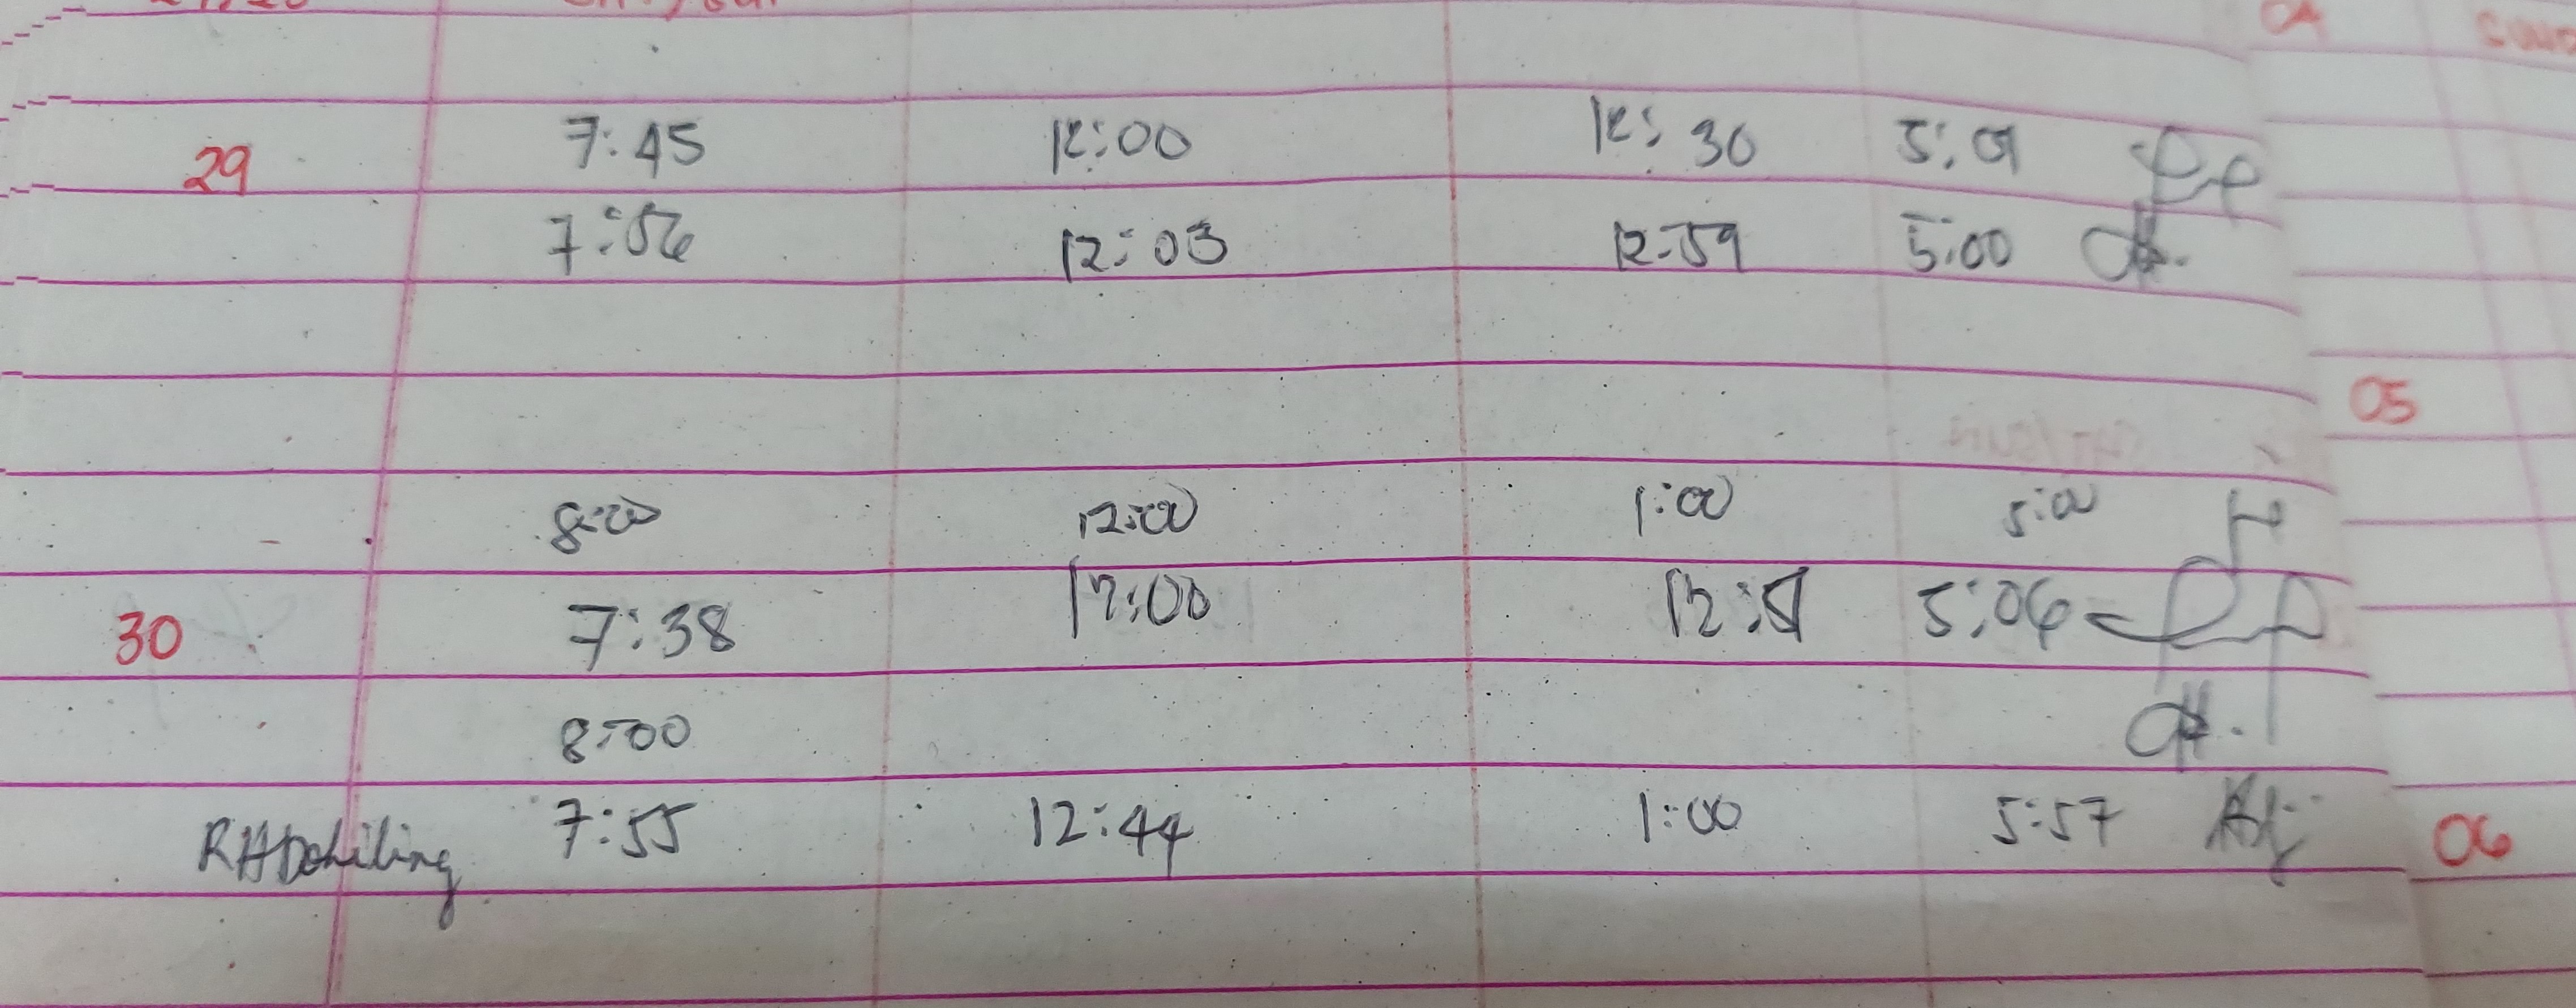 04
29 7:45 12:00 12:30 5:01
7:56 12:03 12:59 5:00
05
8:00 12:00 1:00 5:00
30 7:38 12:00 5:06
8:00
7:55 12:44 1:00 5:57
06